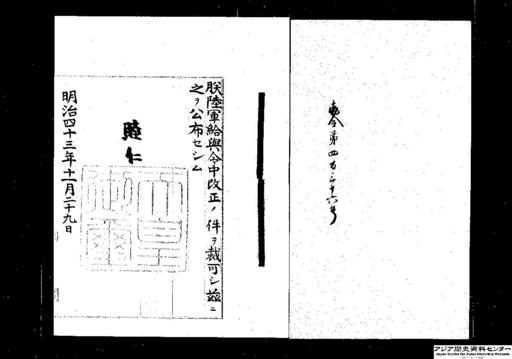 勅令第四百三十六号
朕陸軍給與令中改正ノ件ヲ裁可シ茲ニ
之ヲ公布セシム
睦仁
天皇御璽
明治四十三年十一月二十九日
アジア歴史資料センター
Japan Center for Asian Historical Records